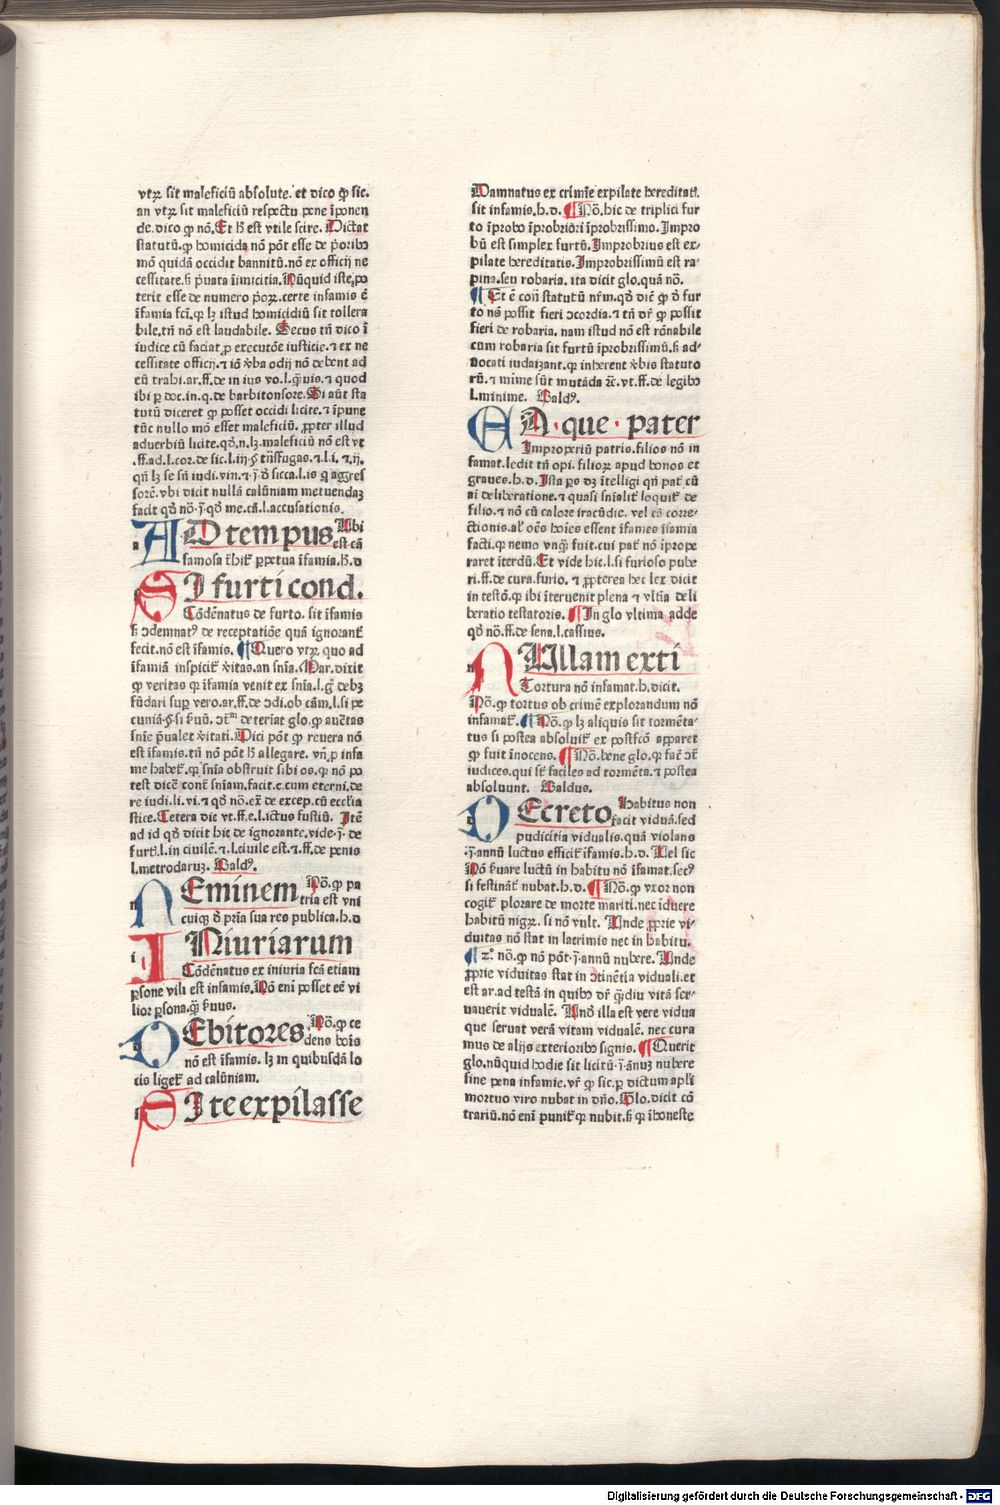 vtrꝝ sit maleficiū absolute. et dico ꝙ sic.
an vtrꝝ sit maleficiū respectu pene īponen
de. dico ꝙ nō. Et hͦ est vtile scire. Dictat
statutū. ꝙ homicida nō pōt esse de prioribꝰ
mō quidā occidit bannitū. nō ex officij ne
cessitate. sꝫ puata īimicitia. Nūquid iste po
terit esse de numero poꝝ. certe infamis ē
īfamia fcī. ꝙ lꝫ istud homicidiū sit tollera
bile. tn̄ nō est laudabile. Secus tn̄ dico ī
iudice cū faciat ꝓ executōe iusticie. ⁊ ex ne
cessitate officij. ⁊ iō ꝟba odij nō debent ad
eū trahi. ar. ff. de in ius vo. l. quis. ⁊ quod
ibi ꝑ doc. in. q. de barbitonsore. Si aūt sta
tutū diceret ꝙ posset occidi licite. ⁊ īpune
tūc nullo mō esset maleficiū. ꝓpter illud
aduerbiū licite. qđ. n. lꝫ. maleficiū nō est vt
.ff. ad. l. cor. de sic. l. iij. §
sorē. vbi dicit nullā calūniam metuendaꝫ
facit qđ nō. me. cā. l. accusationis.
AD tempus Ubi
est cā
famosa ꝑpetua īfamia. h. d
SI furti cond.
Cōdēnatus de furto. sit īfamis
sꝫ ↄdemnatꝰ de receptatiōe quā ignorant̄
fecit. nō est īfamis. ¶ Quero vtrꝝ quo ad
īfamiā inspicit̄ ꝟitas. an snīa. Bar. dixit
ꝙ veritas ꝙ īfamia venit ex snīa. l. debꝫ
fūdari suꝑ vero. ar. ff. de ↄdi. ob cām. l. si pe
cuniā. § si
snīe pualet ꝟitati. Dici pōt ꝙ reuera nō
est īfamis. tn̄ nō pōt hͦ allegare. vn̄ ꝑ infa
me habet̄. ꝙ snīa obstruit sibi os. ꝙ nō po
test dicē ↄͣ snīam. facit. c. cum eterni. de
re iudi. li. vi. ⁊ qđ nō. de excep. cū ecclīa
stice. Cetera dic vt. ff. e. l. ictus fustiū. Itē
ad id qđ dicit hic de ignorante. vide. de
furti. l. in ciuilē. ⁊. l. ciuile est. ⁊. ff. de penis
l. metrodoruꝫ. Baldꝰ.
NEminem Nō. ꝙ pa
tria est vni
cuiqꝫ sua res publica. h. d
INiuriarum
Cōdēnatus ex iniuria fcā etiam
ꝑsone vili est infamis. Nō enī posset eē vi
lior ꝑsona. ꝙ̄ ẜuus.
DEbitores Nō. ꝙ ce
dens bōis
nō est īfamis. lꝫ in quibusdā lo
cis liget̄ ad calūniam.
SI te expilasse
Damnatus ex crimīe expilate hereditatꝭ.
sit infamis. h. d. ¶ Nō. hic de triplici fur
to īprobo īprobriori īprobrissimo. Impro
bū est simplex furtū. Improbrius est ex-
pilate hereditatis. Improbrissimū est ra-
pina. seu robaria. ita dicit glo. quā nō.
¶ Et ē coī statutū nr̄m. qđ dic̄ ꝙ đ fur
to nō possit fieri ↄcordia. ⁊ tn̄ dr̄ ꝙ possit
fieri de robaria. nam istud nō est rōnabile
cum robaria sit furtū īprobrissimū. sꝫ ad-
uocati iudaizant. ꝙ inherent ꝟbis statuto
rū. ⁊ mīme sūt mutāda ⁊c̄. vt. ff. de legibꝰ
l. minime. Baldꝰ.
EA · que · pater
Improperiū patris. filios nō in
famat. ledit tn̄ opi. filioꝝ apud bonos et
graues. h. d. Ista ps dꝫ ītelligi qn̄ pat̄ cū
aī deliberatione. ⁊ quasi snīalit̄ loquit̄ de
filio. ⁊ nō cū calore iracūdie. vel cā corre-
ctionis. al' oēs hoīes essent īfames īfamia
facti. ꝙ nemo vnqꝫ fuit. cui pat̄ nō īprope
raret īterdū. Et vide hic. l. si furioso pube
ri. ff. de cura. furio. ⁊ ꝓpterea hec lex dicit
in testō. ꝙ ibi īteruenit plena ⁊ vltīa deli
beratio testatoris. ¶ In glo vltima adde
qđ nō. ff. de sena. l. cassius.
NUllam exti
Tortura nō infamat. h. dicit.
Nō. ꝙ tortus ob crimē explorandum nō
infamat̄. ¶ Nō. ꝙ lꝫ aliquis sit tormēta-
tus si postea absoluit̄ ex postfcō apparet
ꝙ fuit īnocens. ¶ Nō. bene glo. ꝙ fac̄ ↄͣ
iudices. qui st̄ faciles ad tormēta. ⁊ postea
absoluunt. Baldus.
DEcreto Habitus non
facit viduā. sed
pudicitia vidualis. quā violans
.j. annū luctus efficit̄ īfamis. h. d. Uel sic
Nō ẜuare luctū in habitu nō īfamat. secꝰ
si festināt̄ nubat. h. d. ¶ Nō. ꝙ vxor non
cogit̄ plorare de morte mariti. nec īduere
habitū nigꝝ. si nō vult. Unde ꝓprie vi-
duitas nō stat in lacrimis nec in habitu.
¶ 2ͦ nō. ꝙ nō pōt. j. annū nubere. Unde
ꝓprie viduitas stat in ↄtinētia viduali. et
est ar. ad testā in quibꝰ dr̄ ꝙ̄diu vitā ser-
uauerit vidualē. Unđ illa est vere vidua
que seruat verā vitam vidualē. nec cura
mus de alijs exterioribꝰ signis. ¶ Querit
glo. nūquid hodie sit licitū. j. annuꝫ nubere
sine pena infamie. vr̄ ꝙ sic. ꝑ dictum apl'i
mortuo viro nubat in dño. Glo. dicit cō
trariū. nō enī punit̄ ꝙ nubit. sꝫ ꝙ īhoneste
Digitalisierung gefördert durch die Deutsche Forschungsgemeinschaft - DFG